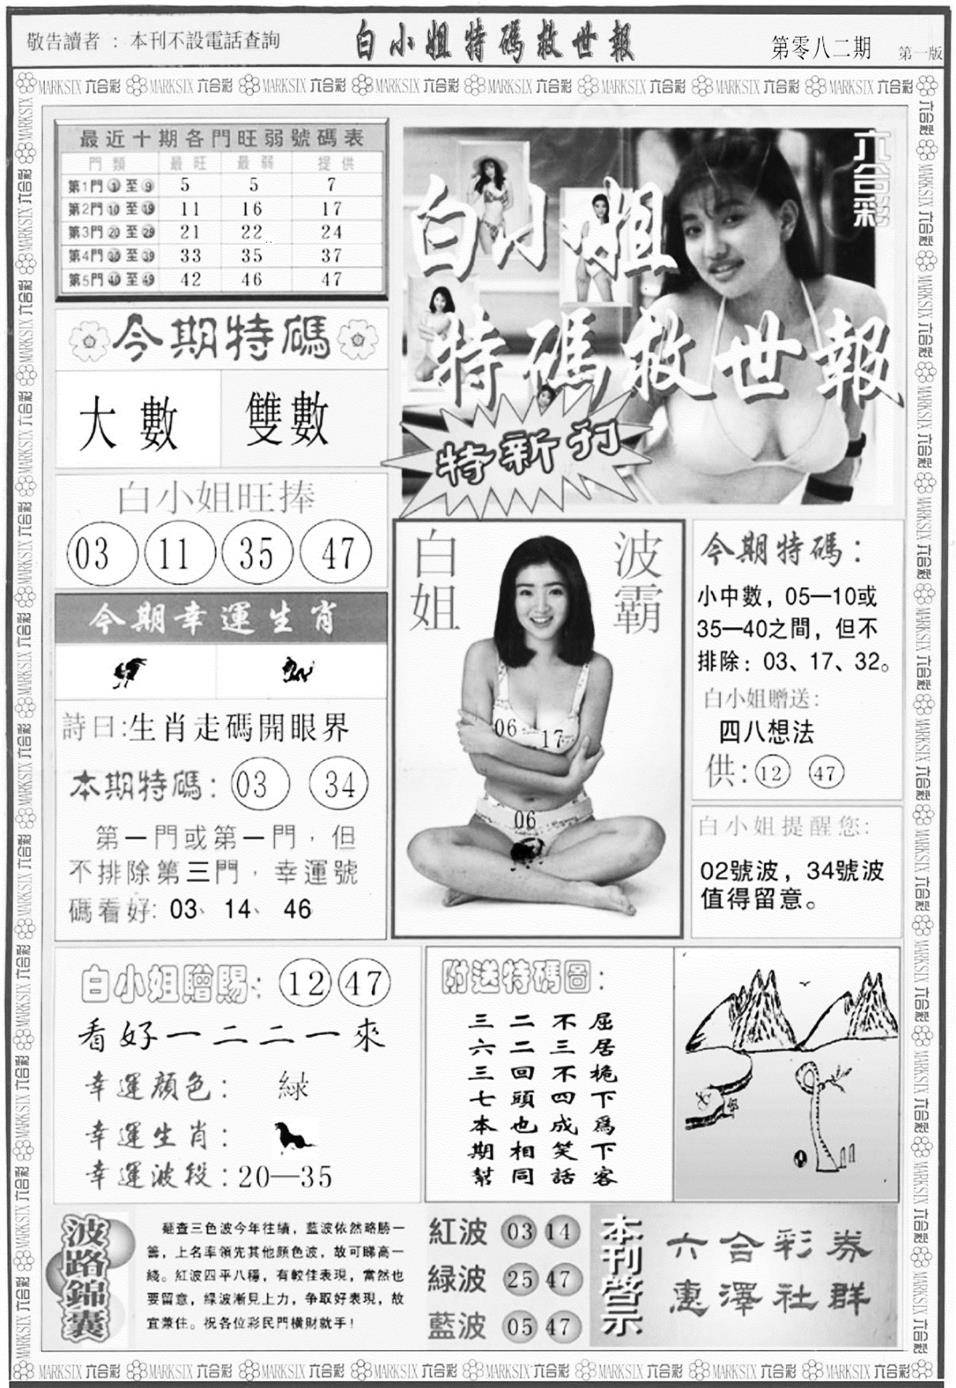 敬告讀者：本刊不設電話查詢
白小姐特碼救世報
第零八二期
第一版
MARKSIX 六合彩
最近十期各門旺弱號碼表
門類 最旺 最弱 提供
第1門①至⑨ 5 5 7
第2門⑩至⑲ 11 16 17
第3門⑳至㉙ 21 22 24
第4門㉚至㊴ 33 35 37
第5門㊵至㊾ 42 46 47
今期特碼
大數 雙數
白小姐旺捧
03 11 35 47
今期幸運生肖
詩曰:生肖走碼開眼界
本期特碼: 03 34
第一門或第一門，但
不排除第三門，幸運號
碼看好: 03、14、46
六合彩
白小姐
特碼救世報
特新刊
白姐
波霸
06 17
06
今期特碼：
小中數，05—10或
35—40之間，但不
排除：03、17、32。
白小姐贈送:
四八想法
供: 12 47
白小姐提醒您:
02號波，34號波
值得留意。
白小姐贈賜: 12 47
看好一二二一來
幸運顏色： 緑
幸運生肖：
幸運波段:20—35
附送特碼圖：
屈居桅下爲下客
不三不四成笑話
二二回頭也相同
三六三七本期幫
波路錦囊
查三色波今年往績，藍波依然略勝一
籌，上名率領先其他顏色波，故可睇高一
綫。紅波四平八穩，有較佳表現，當然也
要留意，緑波漸見上力，争取好表現，故
宜兼住。祝各位彩民門橫財就手!
紅波 03 14
緑波 25 47
藍波 05 47
本刊啓示
六合彩券
惠澤社群